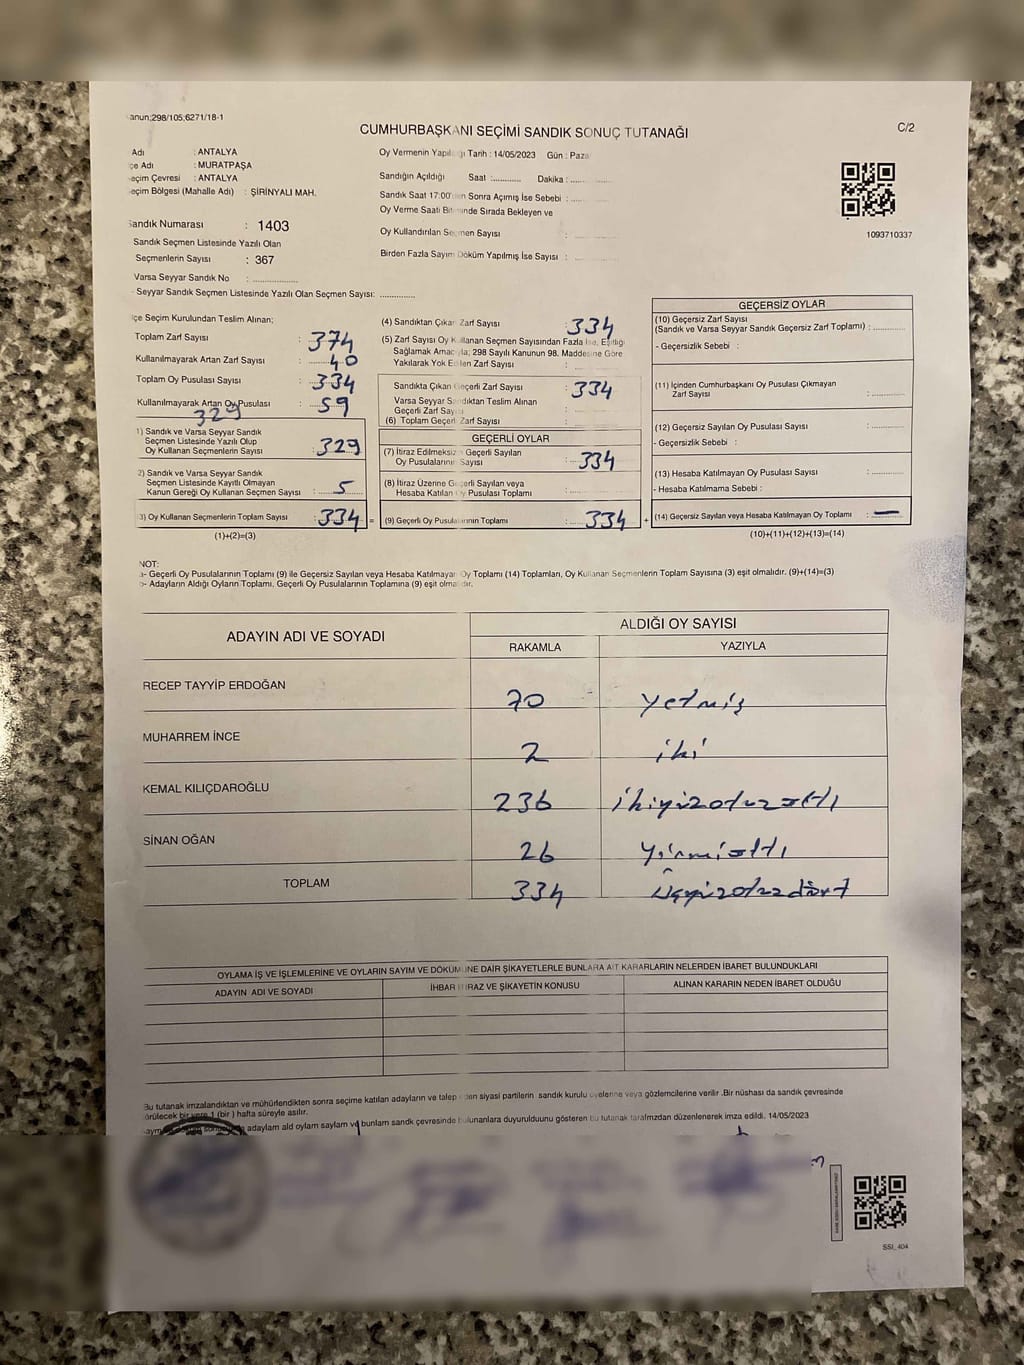 anun;298/105;6271/18-1
CUMHURBAŞKANI SEÇİMİ SANDIK SONUÇ TUTANAĞI
C/2
Adı : ANTALYA
çe Adı : MURATPAŞA
eçim Çevresi : ANTALYA
eçim Bölgesi (Mahalle Adı) : ŞİRİNYALI MAH.
Sandık Numarası : 1403
Sandık Seçmen Listesinde Yazılı Olan
Seçmenlerin Sayısı : 367
Varsa Seyyar Sandık No : ..............
Seyyar Sandık Seçmen Listesinde Yazılı Olan Seçmen Sayısı: ............
Oy Vermenin Yapıldığı Tarih : 14/05/2023 Gün : Paza
Sandığın Açıldığı Saat :.......... Dakika :..............
Sandık Saat 17:00'den Sonra Açımış İse Sebebi : ..............
Oy Verme Saati Bitiminde Sırada Bekleyen ve
Oy Kullandırılan Seçmen Sayısı : ..............
Birden Fazla Sayım Döküm Yapılmış İse Sayısı : ..............
1093710337
lçe Seçim Kurulundan Teslim Alınan;
Toplam Zarf Sayısı : 374
Kullanılmayarak Artan Zarf Sayısı : 40
Toplam Oy Pusulası Sayısı : 334
Kullanılmayarak Artan Oy Pusulası : 59
329
1) Sandık ve Varsa Seyyar Sandık
Seçmen Listesinde Yazılı Olup
Oy Kullanan Seçmenlerin Sayısı : 329
2) Sandık ve Varsa Seyyar Sandık
Seçmen Listesinde Kayıtlı Olmayan
Kanun Gereği Oy Kullanan Seçmen Sayısı : 5
3) Oy Kullanan Seçmenlerin Toplam Sayısı : 334 =
(1)+(2)=(3)
(4) Sandıktan Çıkan Zarf Sayısı : 334
(5) Zarf Sayısı Oy Kullanan Seçmen Sayısından Fazla İse, Eşitliği
Sağlamak Amacıyla; 298 Sayılı Kanunun 98. Maddesine Göre
Yakılarak Yok Edilen Zarf Sayısı :
Sandıkta Çıkan Geçerli Zarf Sayısı : 334
Varsa Seyyar Sandıktan Teslim Alınan
Geçerli Zarf Sayısı :
(6) Toplam Geçerli Zarf Sayısı :
GEÇERLİ OYLAR
(7) İtiraz Edilmeksizin Geçerli Sayılan
Oy Pusulalarının Sayısı : 334
(8) İtiraz Üzerine Geçerli Sayılan veya
Hesaba Katılan Oy Pusulası Toplamı :
(9) Geçerli Oy Pusulalarının Toplamı : 334 +
GEÇERSİZ OYLAR
(10) Geçersiz Zarf Sayısı
(Sandık ve Varsa Seyyar Sandık Geçersiz Zarf Toplamı) :..........
- Geçersizlik Sebebi :
(11) İçinden Cumhurbaşkanı Oy Pusulası Çıkmayan
Zarf Sayısı :..........
(12) Geçersiz Sayılan Oy Pusulası Sayısı :..........
- Geçersizlik Sebebi :
(13) Hesaba Katılmayan Oy Pusulası Sayısı :..........
- Hesaba Katılmama Sebebi :
(14) Geçersiz Sayılan veya Hesaba Katılmayan Oy Toplamı : —
(10)+(11)+(12)+(13)=(14)
NOT:
a- Geçerli Oy Pusulalarının Toplamı (9) ile Geçersiz Sayılan veya Hesaba Katılmayan Oy Toplamı (14) Toplamları, Oy Kullanan Seçmenlerin Toplam Sayısına (3) eşit olmalıdır. (9)+(14)=(3)
b- Adayların Aldığı Oyların Toplamı, Geçerli Oy Pusulalarının Toplamına (9) eşit olmalıdır.
ADAYIN ADI VE SOYADI
ALDIĞI OY SAYISI
RAKAMLA YAZIYLA
RECEP TAYYİP ERDOĞAN 70 yetmiş
MUHARREM İNCE 2 iki
KEMAL KILIÇDAROĞLU 236 ikiyüzotuzaltı
SİNAN OĞAN 26 yirmialtı
TOPLAM 334 üçyüzotuzdört
OYLAMA İŞ VE İŞLEMLERİNE VE OYLARIN SAYIM VE DÖKÜMÜNE DAİR ŞİKAYETLERLE BUNLARA AİT KARARLARIN NELERDEN İBARET BULUNDUKLARI
ADAYIN ADI VE SOYADI İHBAR İTİRAZ VE ŞİKAYETİN KONUSU ALINAN KARARIN NEDEN İBARET OLDUĞU
Bu tutanak imzalandıktan ve mühürlendikten sonra seçime katılan adayların ve talep eden siyasi partilerin sandık kurulu üyelerine veya gözlemcilerine verilir .Bir nüshası da sandık çevresinde
görülecek bir yere 1 (bir ) hafta süreyle asılır.
adaylam ald oylam saylam ve bunlam sandk çevresinde bulunanlara duyurulduunu gösteren bu tutanak tarafmzdan düzenlenerek imza edildi. 14/05/2023
SSI_404